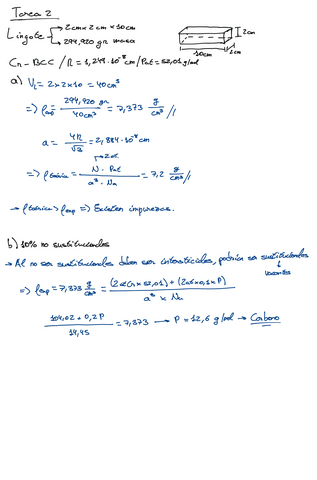 Tarea 2
Lingote → 2cm x 2cm x 10cm
→ 294,920 gr masa
2cm
10cm
2cm
Cr-BCC / R = 1,249·10⁻⁸ cm / Pat = 52,01 g/mol
a) V_L = 2x2x10 = 40cm³
=> ρexp = 294,920 gr / 40cm³ = 7,373 g/cm³ //
a = 4R / √3 = 2,884·10⁻⁸ cm
→ 2at
=> ρteórica = N · Pat / a³ · Na = 7,2 g/cm³ //
→ ρteórica > ρexp => Existen impurezas.
b) 10% no sustitucionales
→ Al no ser sustitucionales deben ser intersticiales, podrían ser sustitucionales
↓
vacantes
=> ρexp = 7,373 g/cm³ = (2atCr x 52,01) + (2at x 0,1 x P) / a³ x Na
104,02 + 0,2P / 14,45 = 7,373 → P = 12,6 g/mol → Carbono